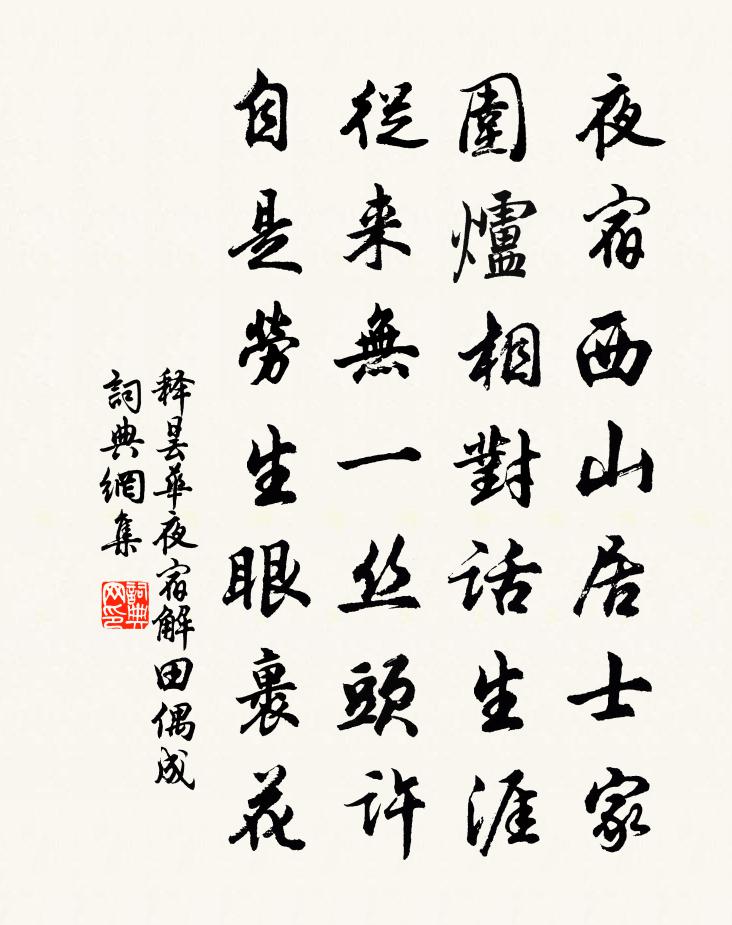 夜宿西山居士家
圍爐相對話生涯
從来無一丝頭許
自是勞生眼裹花
释曇華夜宿解田偶成
詞典網集
詞典网印